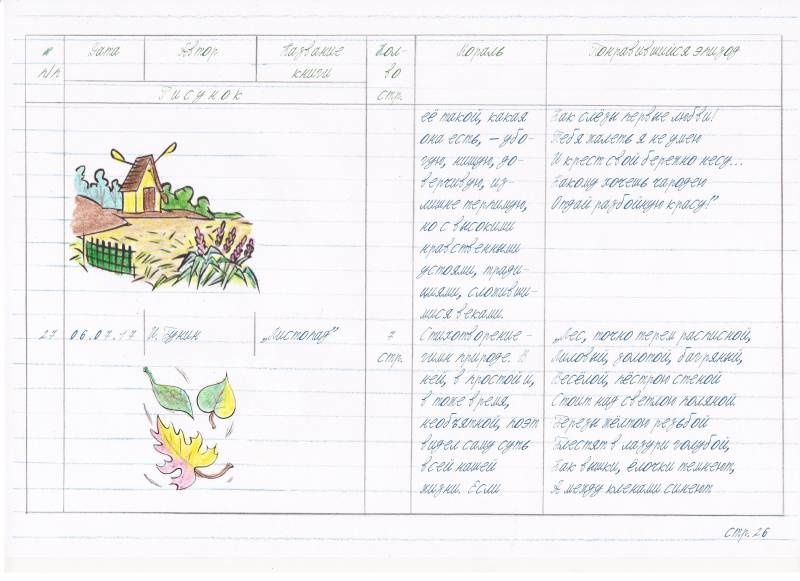 № п/п
Дата
Автор
Название книги
Кол-во стр.
Мораль
Понравившийся эпизод
Рисунок
её такой, какая
она есть, – убо-
гую, нищую, до-
верчивую, из-
лишне терпимую,
но с высокими
нравственными
устоями, тради-
циями, сложивши-
мися веками.
Как слёзы первые любви!
Тебя жалеть я не умею
И крест свой бережно несу...
Какому хочешь чародею
Отдай разбойную красу!"
27
06.07.17
И. Бунин
„Листопад"
7
стр.
Стихотворение -
гимн природе. В
ней, в простой и,
в тоже время,
необъятной, поэт
видел саму суть
всей нашей
жизни. Если
„Лес, точно терем расписной,
Лиловый, золотой, багряный,
Весёлой, пёстрою стеной
Стоит над светлою поляной.
Берёзы жёлтою резьбой
Блестят в лазури голубой,
Как вышки, ёлочки темнеют,
А между клёнами синеют
стр. 26